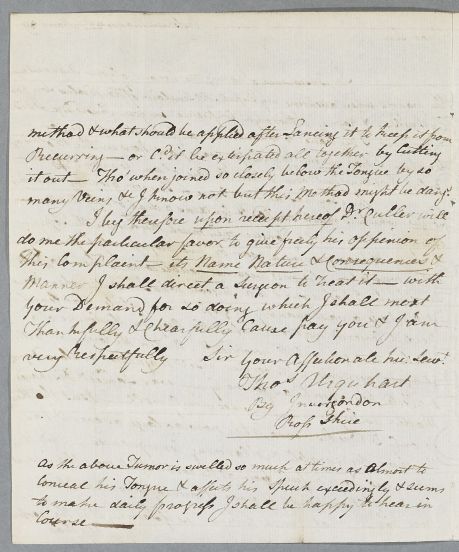 method & what should be applied after Lancing it to keep it from
Recurring — or C.d it be extirpated all together by Cutting
it out — Tho' when joined so closely below the Tongue by so
many Veins & I know not but this Method might be dang.s
I beg therefore upon receipt hereof Dr. Cullen will
do me the particular favor to give freely his oppenion of
this Complaint — its Name Nature & Consequences &
Manner I shall direct a Surgeon to treat it — with
your Demand for so doing which I shall most
Thankfully & Chearfully Cause pay you & I am
very Respectfully Sir your Affectionate hu: Servt.
Thos. Urquhart
By Invergordon
Ross Shire
as the above Tumor is swelled so much at times as almost to
Conceal his Tongue & affects his Speech exceedingly & seems
to make daily progress I shall be happy to hear in
Course —